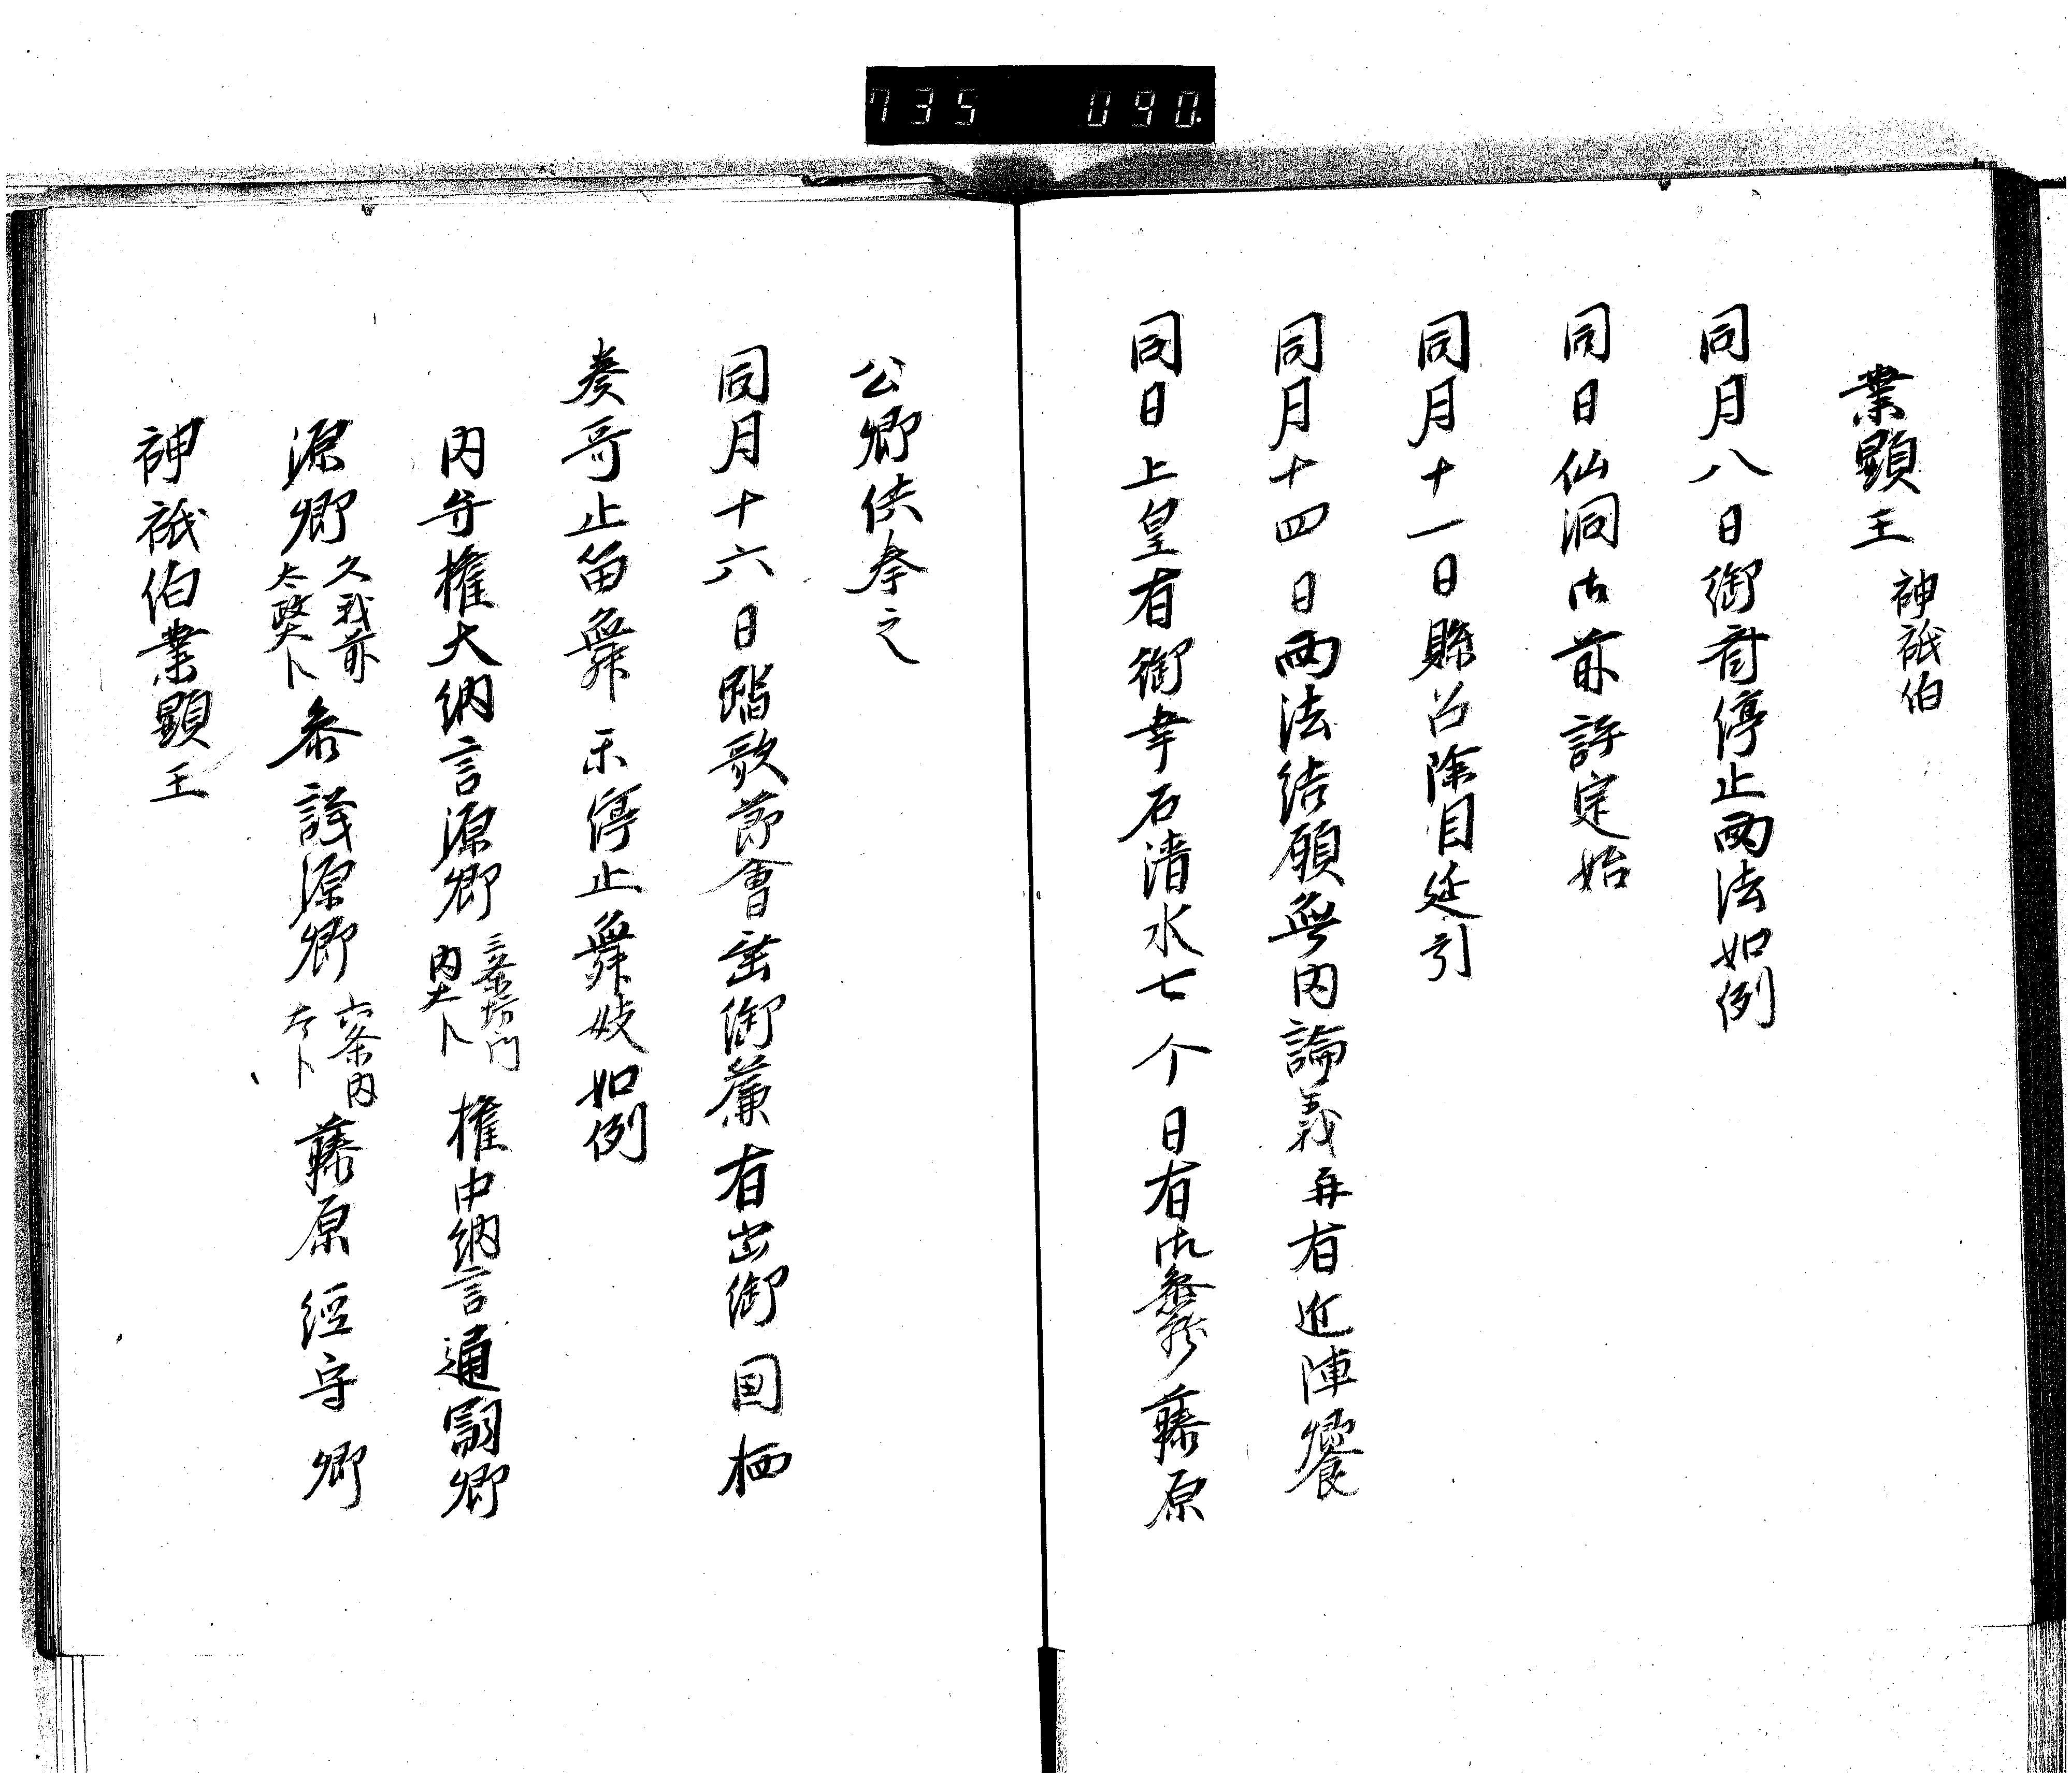 735 090
業顕王 神祇伯
同月八日御斎停止両法如例
同日仙洞御前評定始
同月十一日縣召除目延引
同月十四日両法結願無内論義再有近陣饗
同日上皇有御幸石清水七个日有御参籠藤原
公卿供奉之
同月十六日踏歌節會垂御簾有出御国栖
奏哥止笛舞楽停止舞妓如例
内弁権大納言源卿 三条坊門 内大卜 権中納言通嗣卿
源卿 久我前 太政大卜 参議源卿 六条内 大卜 藤原経守卿
神祇伯業顕王